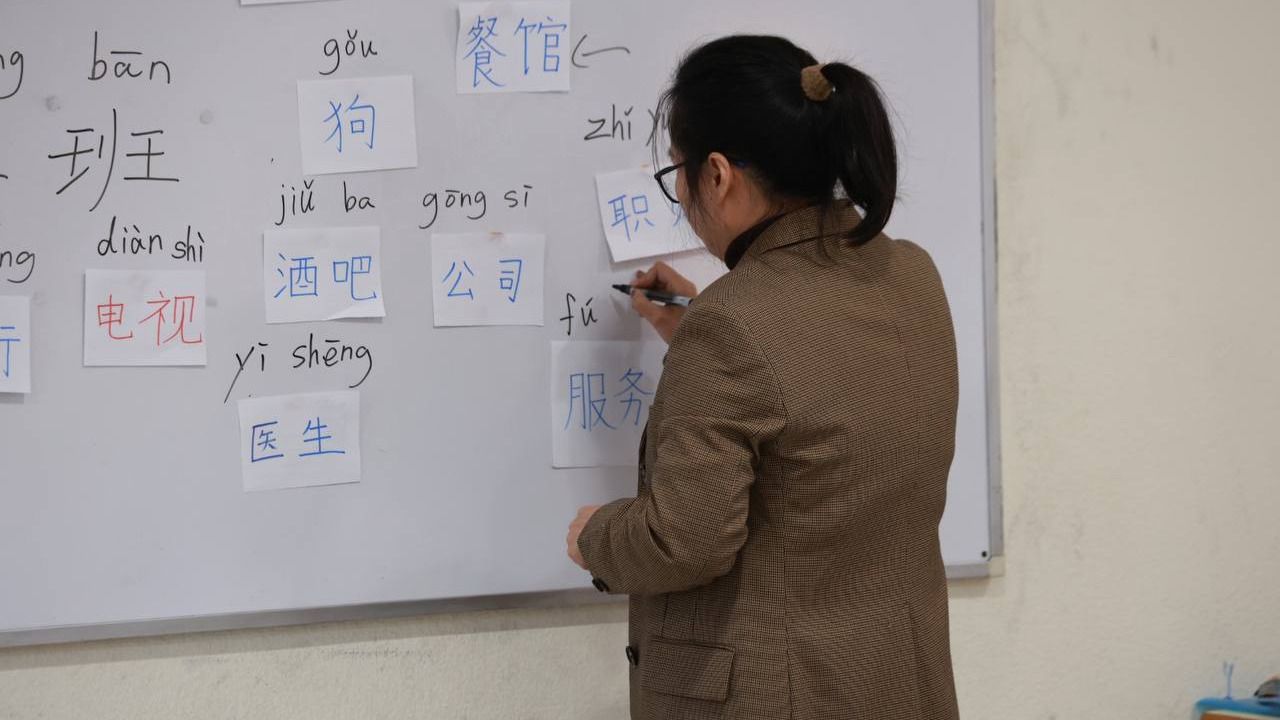 bān
班
gǒu
狗
餐馆
zhí
职
diàn shì
电视
jiǔ ba
酒吧
gōng sī
公司
fú
服务
yī shēng
医生